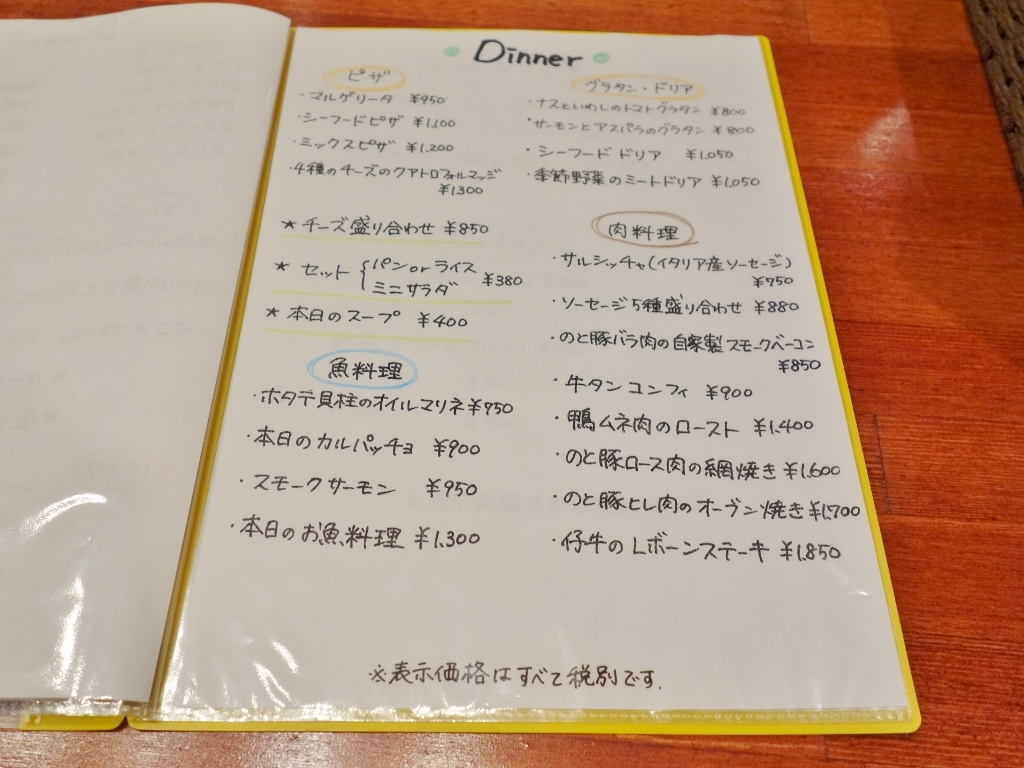 Dinner
ピザ
・マルゲリータ ¥950
・シーフードピザ ¥1,100
・ミックスピザ ¥1,200
・4種のチーズのクアトロフォルマッジ
¥1300
★チーズ盛り合わせ ¥850
★ セット { パン or ライス
ミニサラダ ¥380
★本日のスープ ¥400
魚料理
・ホタテ貝柱のオイルマリネ ¥750
・本日のカルパッチョ ¥900
・スモークサーモン ¥950
・本日のお魚料理 ¥1,300
グラタン・ドリア
・ナスといわしのトマトグラタン ¥800
・サーモンとアスパラのグラタン ¥800
・シーフードドリア ¥1,050
・季節野菜のミートドリア ¥1,050
肉料理
・サルシッチャ(イタリア産ソーセージ)
¥750
・ソーセージ5種盛り合わせ ¥880
・のと豚バラ肉の自家製スモークベーコン
¥850
・牛タンコンフィ ¥900
・鴨ムネ肉のロースト ¥1,400
・のと豚ロース肉の網焼き ¥1,600
・のと豚ヒレ肉のオーブン焼き ¥1,700
・仔牛のLボーンステーキ ¥1,850
※表示価格はすべて税別です.